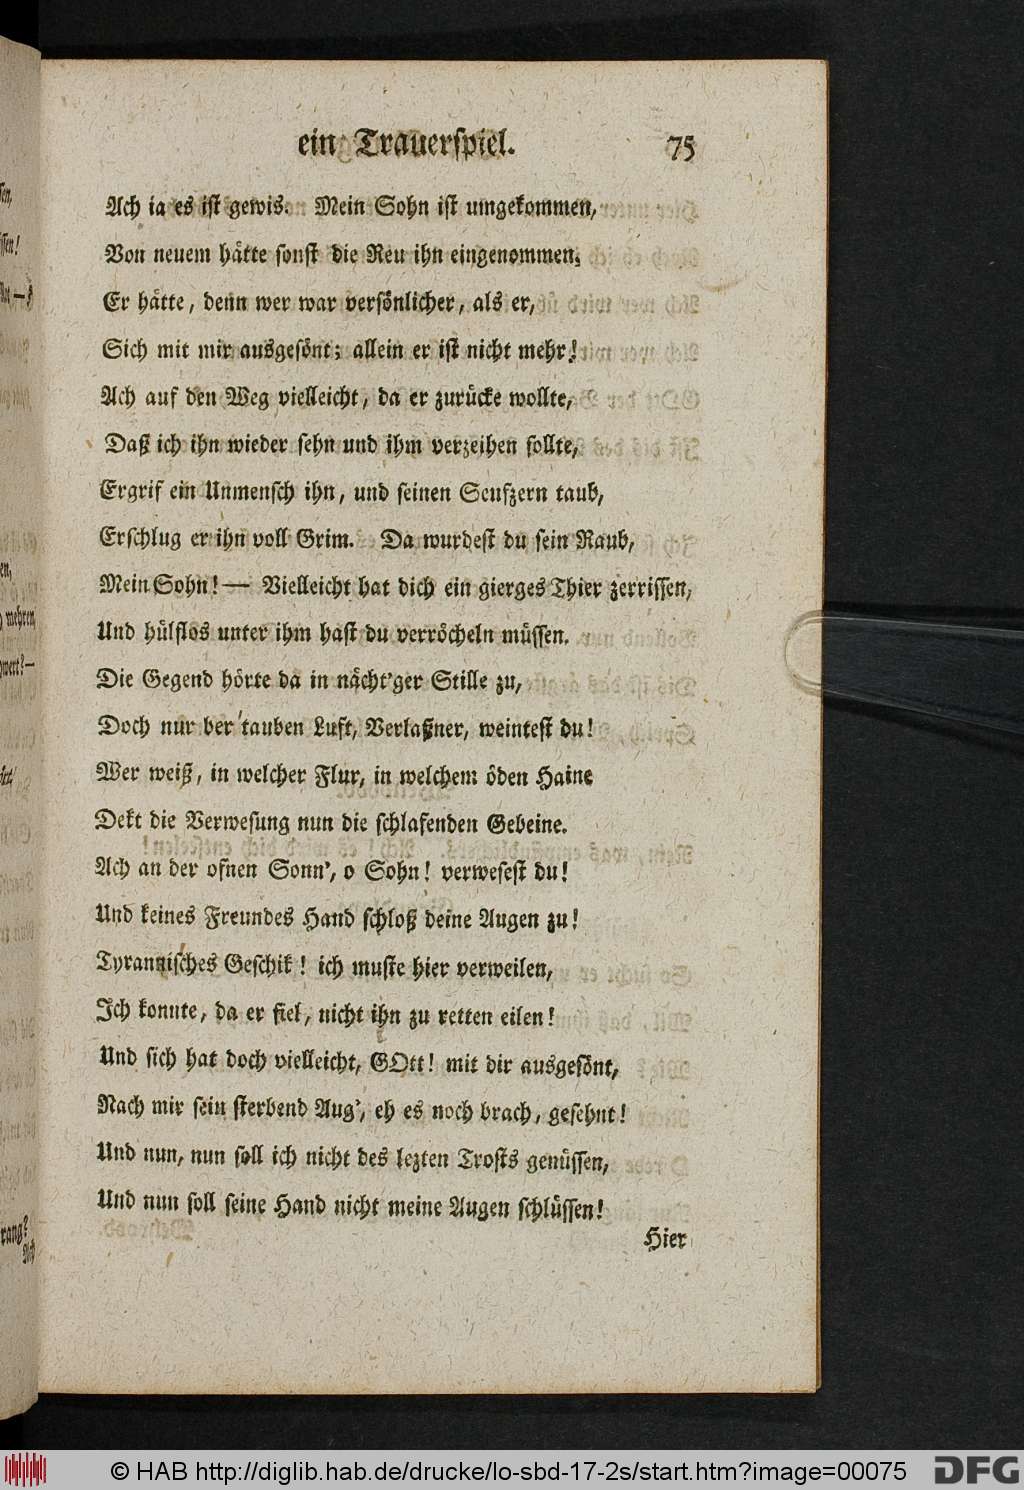 ein Trauerspiel. 75
Ach ia es ist gewis. Mein Sohn ist umgekommen,
Von neuem hätte sonst die Reu ihn eingenommen.
Er hätte, denn wer war versönlicher, als er,
Sich mit mir ausgesönt; allein er ist nicht mehr!
Ach auf den Weg vielleicht, da er zurücke wollte,
Daß ich ihn wieder sehn und ihm verzeihen sollte,
Ergrif ein Unmensch ihn, und seinen Seufzern taub,
Erschlug er ihn voll Grim. Da wurdest du sein Raub,
Mein Sohn! — Vielleicht hat dich ein gierges Thier zerrissen,
Und hülflos unter ihm hast du verröcheln müssen.
Die Gegend hörte da in nächt'ger Stille zu,
Doch nur der tauben Luft, Verlaßner, weintest du!
Wer weiß, in welcher Flur, in welchem öden Haine
Dekt die Verwesung nun die schlafenden Gebeine.
Ach an der ofnen Sonn', o Sohn! verwesest du!
Und keines Freundes Hand schloß deine Augen zu!
Tyrannisches Geschik! ich muste hier verweilen,
Ich konnte, da er fiel, nicht ihn zu retten eilen!
Und sich hat doch vielleicht, GOtt! mit dir ausgesönt,
Nach mir sein sterbend Aug', eh es noch brach, gesehnt!
Und nun, nun soll ich nicht des lezten Trosts genüssen,
Und nun soll seine Hand nicht meine Augen schlüssen!
Hier
© HAB http://diglib.hab.de/drucke/lo-sbd-17-2s/start.htm?image=00075
DFG